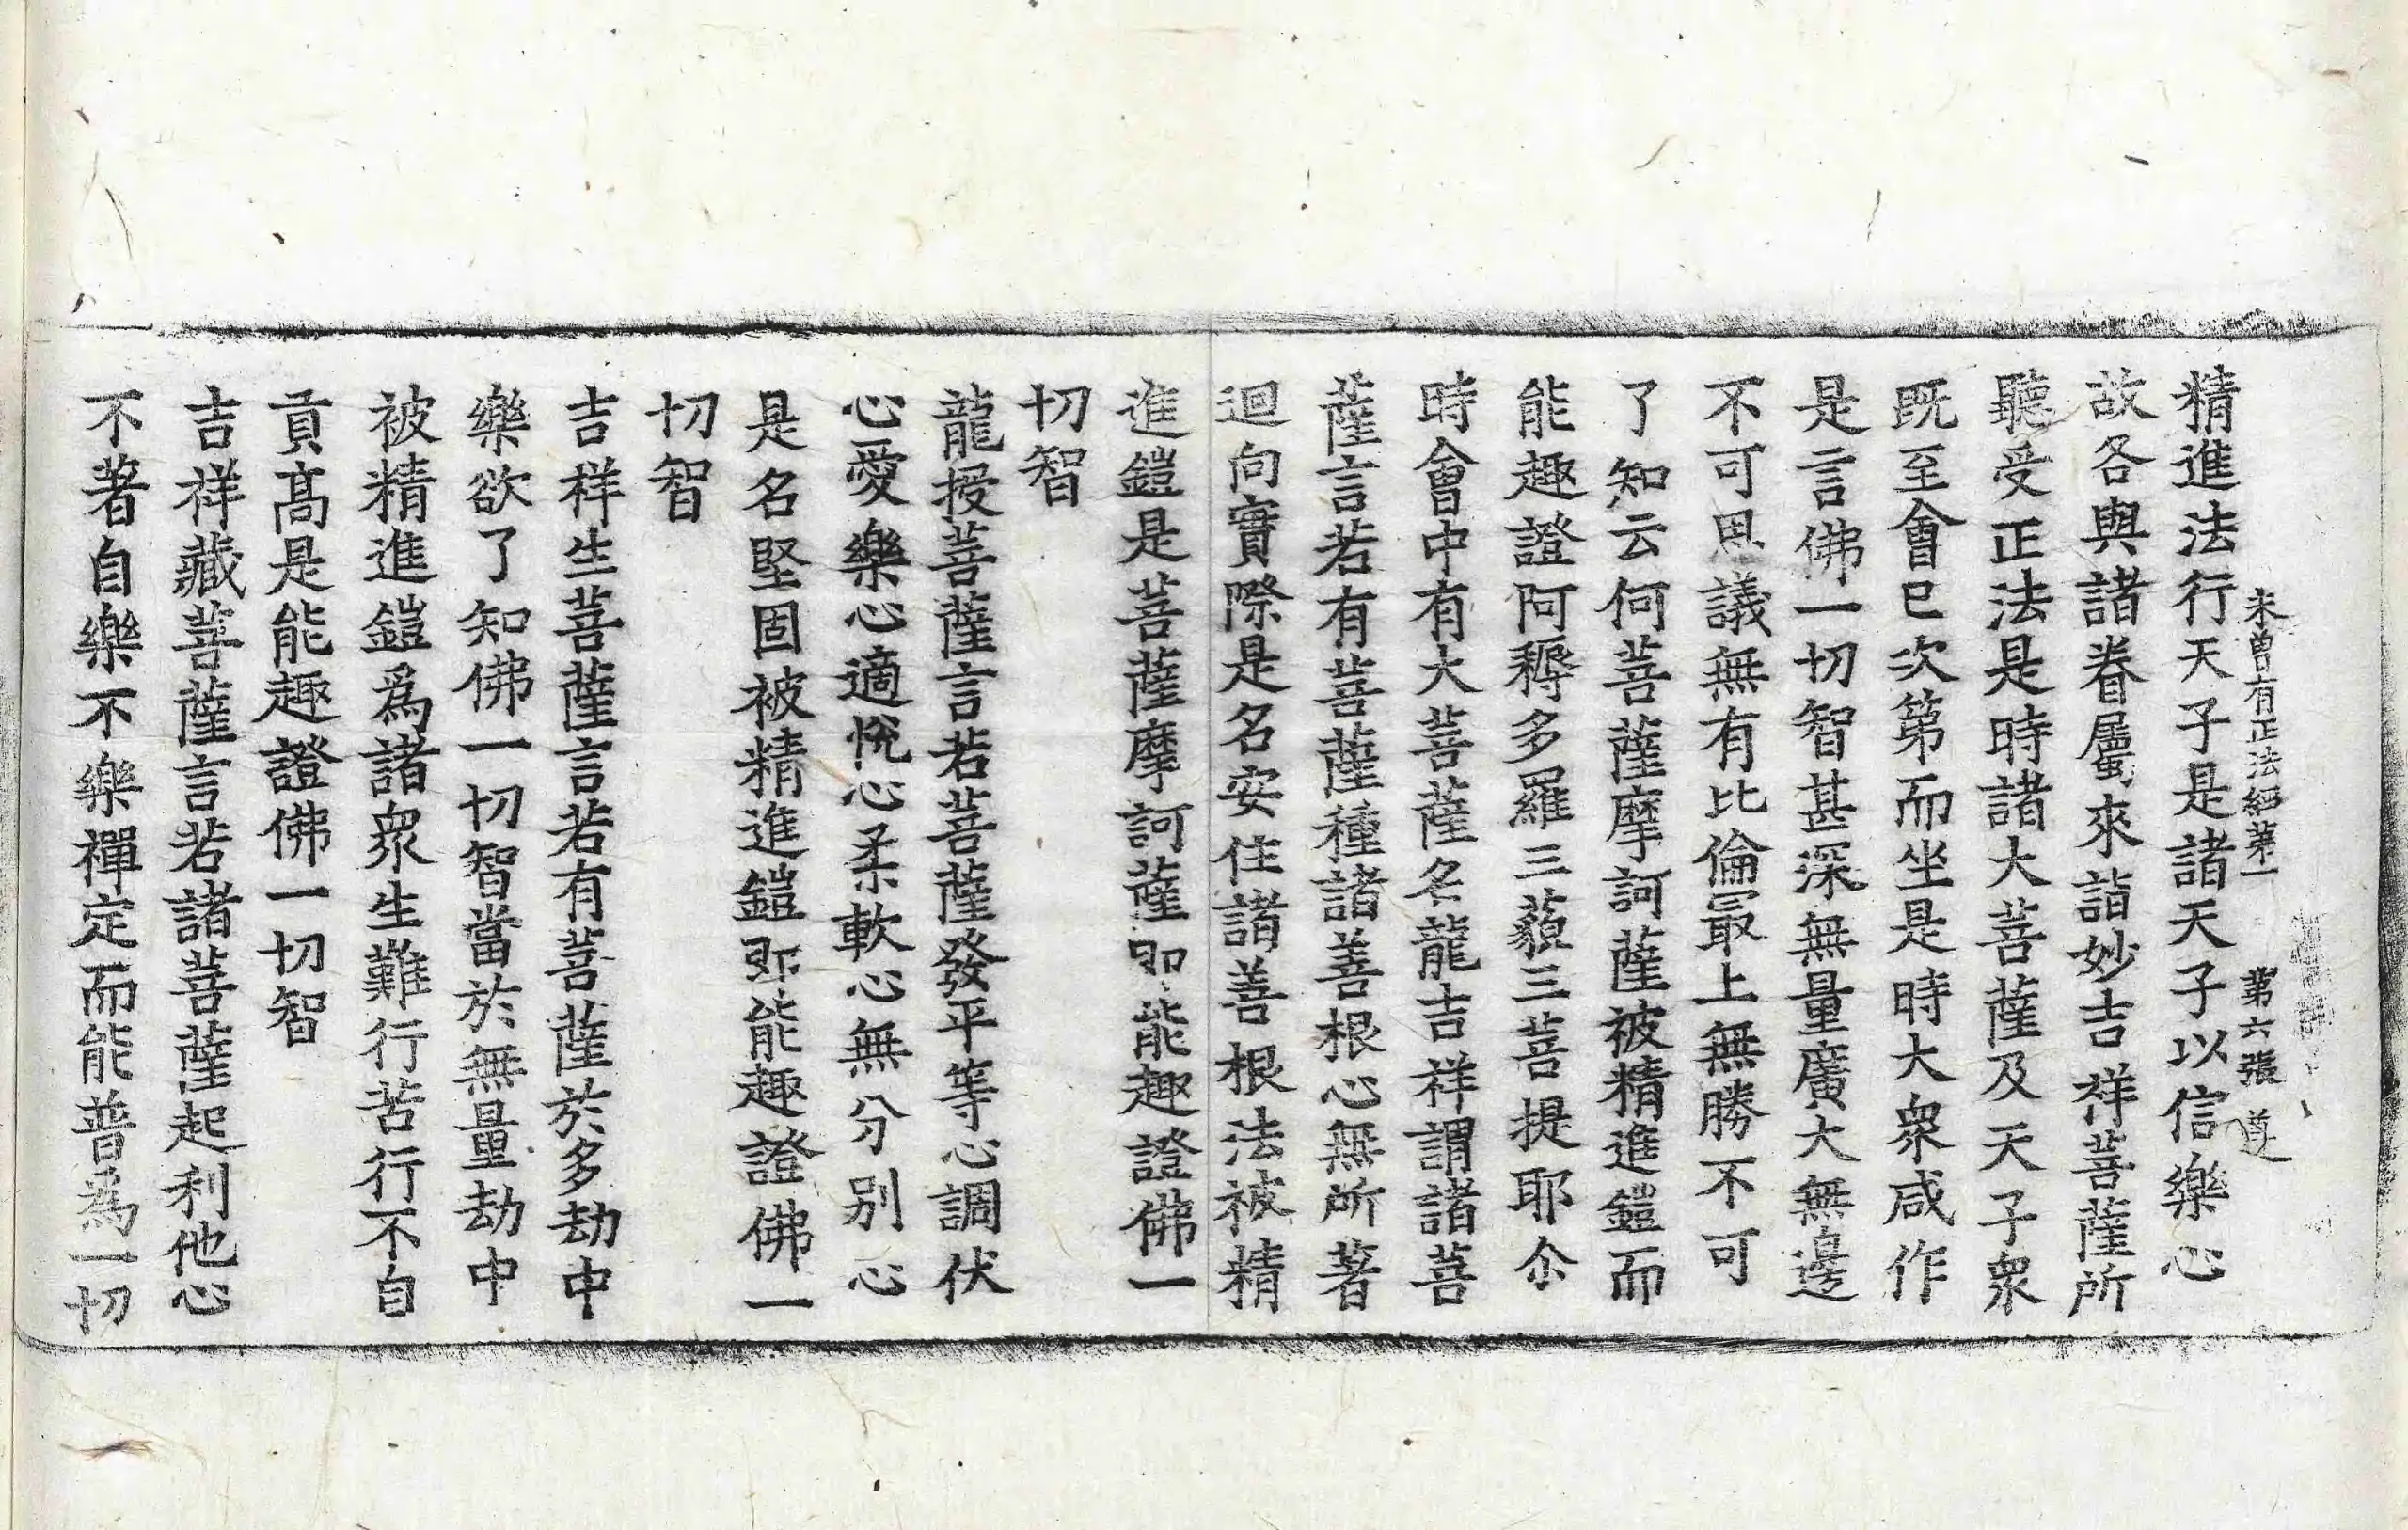 未曾有正法經第一 第六張 遵
精進法行天子是諸天子以信樂心
故各與諸眷屬來詣妙吉祥菩薩所
聽受正法是時諸大菩薩及天子衆
既至會已次第而坐是時大衆咸作
是言佛一切智甚深無量廣大無邊
不可思議無有比倫最上無勝不可
了知云何菩薩摩訶薩被精進鎧而
能趣證阿耨多羅三藐三菩提耶尒
時會中有大菩薩名龍吉祥謂諸菩
薩言若有菩薩種諸善根心無所著
迴向實際是名安住諸善根法被精
進鎧是菩薩摩訶薩即能趣證佛一
切智
龍授菩薩言若菩薩發平等心調伏
心愛樂心適悅心柔軟心無分別心
是名堅固被精進鎧即能趣證佛一
切智
吉祥生菩薩言若有菩薩於多劫中
樂欲了知佛一切智當於無量劫中
被精進鎧爲諸衆生難行苦行不自
貢髙是能趣證佛一切智
吉祥藏菩薩言若諸菩薩起利他心
不著自樂不樂禪定而能普爲一切